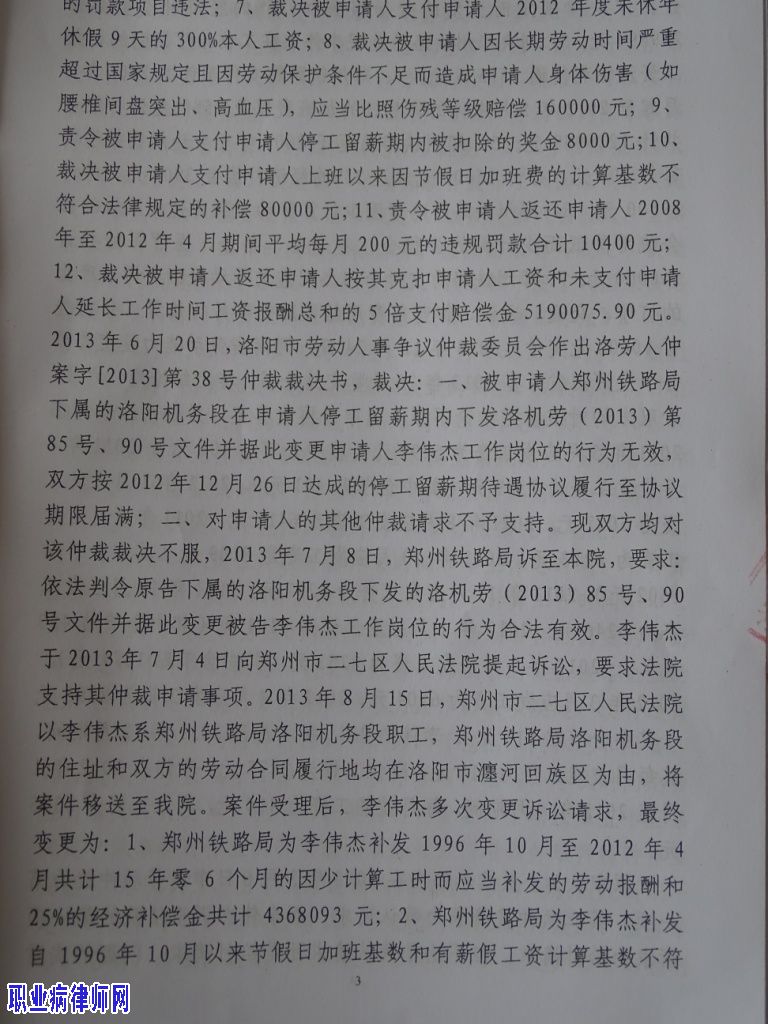 的罚款项目违法；7、裁决被申请人支付申请人 2012 年度未休年
休假 9 天的 300%本人工资；8、裁决被申请人因长期劳动时间严重
超过国家规定且因劳动保护条件不足而造成申请人身体伤害（如
腰椎间盘突出、高血压），应当比照伤残等级赔偿 160000 元；9、
责令被申请人支付申请人停工留薪期内被扣除的奖金8000元；10、
裁决被申请人支付申请人上班以来因节假日加班费的计算基数不
符合法律规定的补偿 80000 元；11、责令被申请人返还申请人 2008
年至 2012 年 4 月期间平均每月 200 元的违规罚款合计 10400 元；
12、裁决被申请人返还申请人按其克扣申请人工资和未支付申请
人延长工作时间工资报酬总和的 5 倍支付赔偿金 5190075.90 元。
2013 年 6 月 20 日，洛阳市劳动人事争议仲裁委员会作出洛劳人仲
案字[2013]第 38 号仲裁裁决书，裁决：一、被申请人郑州铁路局
下属的洛阳机务段在申请人停工留薪期内下发洛机劳（2013）第
85 号、90 号文件并据此变更申请人李伟杰工作岗位的行为无效，
双方按 2012 年 12 月 26 日达成的停工留薪期待遇协议履行至协议
期限届满；二、对申请人的其他仲裁请求不予支持。现双方均对
该仲裁裁决不服，2013 年 7 月 8 日，郑州铁路局诉至本院，要求：
依法判令原告下属的洛阳机务段下发的洛机劳（2013）85 号、90
号文件并据此变更被告李伟杰工作岗位的行为合法有效。李伟杰
于 2013 年 7 月 4 日向郑州市二七区人民法院提起诉讼，要求法院
支持其仲裁申请事项。2013 年 8 月 15 日，郑州市二七区人民法院
以李伟杰系郑州铁路局洛阳机务段职工，郑州铁路局洛阳机务段
的住址和双方的劳动合同履行地均在洛阳市瀍河回族区为由，将
案件移送至我院。案件受理后，李伟杰多次变更诉讼请求，最终
变更为：1、郑州铁路局为李伟杰补发 1996 年 10 月至 2012 年 4
月共计 15 年零 6 个月的因少计算工时而应当补发的劳动报酬和
25%的经济补偿金共计 4368093 元；2、郑州铁路局为李伟杰补发
自 1996 年 10 月以来节假日加班基数和有薪假工资计算基数不符
3
职业病律师网